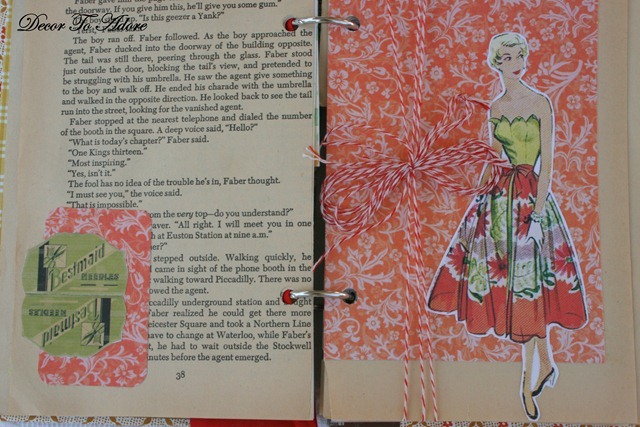 Decor To Adore
Faber gave him
the doorway. If you give him this, he'll give you some gum."
"Is this geezer a Yank?"
The boy ran off. Faber followed. As the boy approached the
agent, Faber ducked into the doorway of the building opposite.
The tail was still there, peering through the glass. Faber stood
just outside the door, blocking the tail's view, and pretended to
be struggling with his umbrella. He saw the agent give something
to the boy and walk off. He ended his charade with the umbrella
and walked in the opposite direction. He looked back to see the tail
run into the street, looking for the vanished agent.
Faber stopped at the nearest telephone and dialed the number
of the booth in the square. A deep voice said, "Hello?"
"What is today's chapter?" Faber said.
"One Kings thirteen."
"Most inspiring."
"Yes, isn't it."
The fool has no idea of the trouble he's in, Faber thought.
"I must see you," the voice said.
"That is impossible."
from the very top—do you understand?"
"All right. I will meet you in
at Euston Station at nine a.m."
stepped outside. Walking quickly, he
came in sight of the phone booth in the
walking toward Piccadilly. There was no
owed the agent.
ccadilly underground station and
Faber realized he could get there more
eicester Square and took a Northern Line
have to change at Waterloo, while Faber's
, he had to wait outside the Stockwell
nutes before the agent emerged.
38
Bestmaid
NEEDLES
Bestmaid
NEEDLES